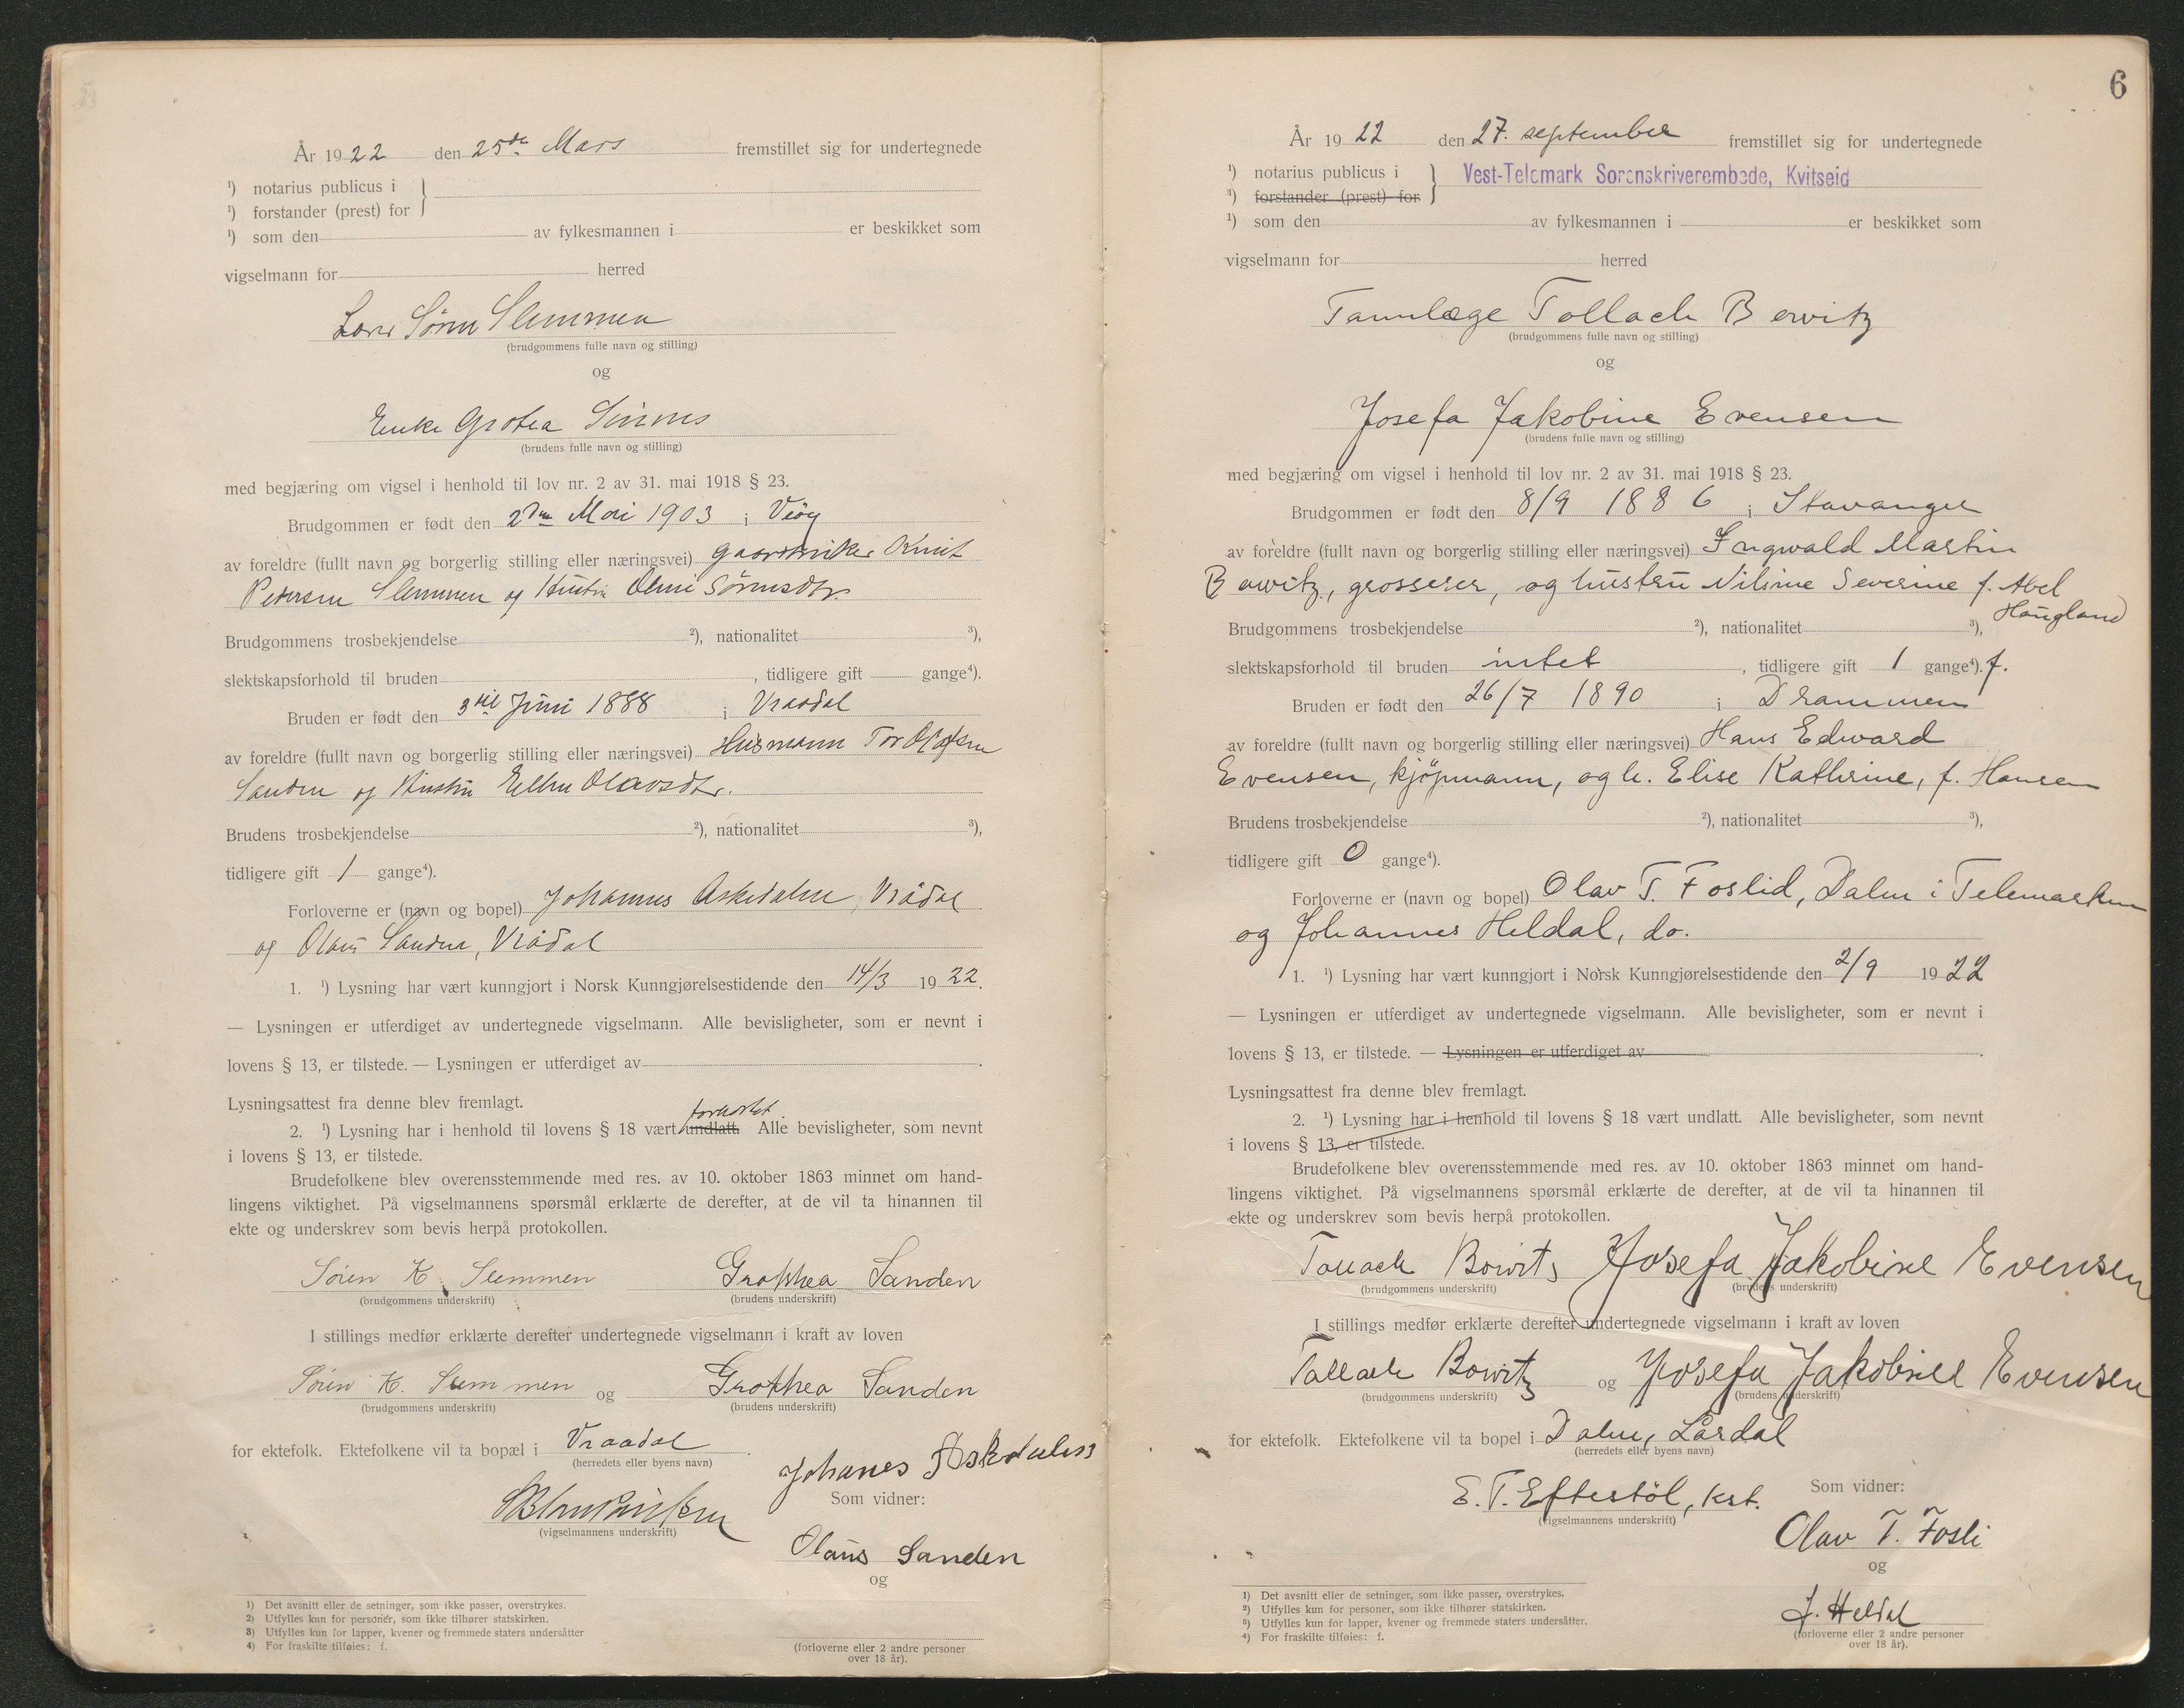 År 1922 den 25de Mars fremstillet sig for undertegnede
¹) notarius publicus i
¹) forstander (prest) for
¹) som den av fylkesmannen i er beskikket som
vigselmann for herred
Sørn Slemmen
(brudgommens fulle navn og stilling)
og
Enke Grotea
(brudens fulle navn og stilling)
med begjæring om vigsel i henhold til lov nr. 2 av 31. mai 1918 § 23.
Brudgommen er født den Mai 1903 i
av foreldre (fullt navn og borgerlig stilling eller næringsvei) Knut
Petersen Slemmen og Hustru
Brudgommens trosbekjendelse ²), nationalitet ³),
slektskapsforhold til bruden , tidligere gift gange⁴).
Bruden er født den 3die Juni 1888 i Vraadal
av foreldre (fullt navn og borgerlig stilling eller næringsvei) Husmann Tor Olafsen
Sanden og Hustru Olavsdtr.
Brudens trosbekjendelse ²), nationalitet ³),
tidligere gift 1 gange⁴).
Forloverne er (navn og bopel) Johannes Askedalen, Vrådal
og Olaus Sanden, Vrådal
1. ¹) Lysning har vært kunngjort i Norsk Kunngjørelsestidende den 14/3 1922.
— Lysningen er utferdiget av undertegnede vigselmann. Alle bevisligheter, som er nevnt i
lovens § 13, er tilstede. — Lysningen er utferdiget av
Lysningsattest fra denne blev fremlagt.
forkortet.
2. ¹) Lysning har i henhold til lovens § 18 vært undlatt. Alle bevisligheter, som nevnt
i lovens § 13, er tilstede.
Brudefolkene blev overensstemmende med res. av 10. oktober 1863 minnet om hand-
lingens viktighet. På vigselmannens spørsmål erklærte de derefter, at de vil ta hinannen til
ekte og underskrev som bevis herpå protokollen.
Søren K. Slemmen Grothea Sanden
(brudgommens underskrift) (brudens underskrift)
I stillings medfør erklærte derefter undertegnede vigselmann i kraft av loven
Søren K. Slemmen og Grothea Sanden
(brudgommens underskrift) (brudens underskrift)
for ektefolk. Ektefolkene vil ta bopæl i Vraadal
(herredets eller byens navn)
Johanes Askedalen
Som vidner:
(vigselmannens underskrift)
Olaus Sanden
og
(forloverne eller 2 andre personer
over 18 år).
1) Det avsnitt eller de setninger, som ikke passer, overstrykes.
2) Utfylles kun for personer, som ikke tilhører statskirken.
3) Utfylles kun for lapper, kvener og fremmede staters undersåtter
4) For fraskilte tilføies: f.
6
År 1922 den 27. september fremstillet sig for undertegnede
¹) notarius publicus i Vest-Telemark Sorenskriverembede, Kvitseid
¹) forstander (prest) for
¹) som den av fylkesmannen i er beskikket som
vigselmann for herred
Tannlæge Tollach Bowitz
(brudgommens fulle navn og stilling)
og
Josefa Jakobine Evensen
(brudens fulle navn og stilling)
med begjæring om vigsel i henhold til lov nr. 2 av 31. mai 1918 § 23.
Brudgommen er født den 8/9 1886 i Stavanger
av foreldre (fullt navn og borgerlig stilling eller næringsvei) Ingwald Martin
Bowitz, grosserer, og hustru Nilsine Severine f. Abel
Haugland
Brudgommens trosbekjendelse ²), nationalitet ³),
slektskapsforhold til bruden intet , tidligere gift 1 gange⁴). f.
Bruden er født den 26/7 1890 i Drammen
av foreldre (fullt navn og borgerlig stilling eller næringsvei) Hans Edward
Evensen, kjøpmann, og h. Elise Kathrine, f. Hansen
Brudens trosbekjendelse ²), nationalitet ³),
tidligere gift 0 gange⁴).
Forloverne er (navn og bopel) Olav T. Foslid, Dalen i Telemarken
og Johannes Heldal, do.
1. ¹) Lysning har vært kunngjort i Norsk Kunngjørelsestidende den 2/9 1922
— Lysningen er utferdiget av undertegnede vigselmann. Alle bevisligheter, som er nevnt i
lovens § 13, er tilstede. — Lysningen er utferdiget av
Lysningsattest fra denne blev fremlagt.
2. ¹) Lysning har i henhold til lovens § 18 vært undlatt. Alle bevisligheter, som nevnt
i lovens § 13, er tilstede.
Brudefolkene blev overensstemmende med res. av 10. oktober 1863 minnet om hand-
lingens viktighet. På vigselmannens spørsmål erklærte de derefter, at de vil ta hinannen til
ekte og underskrev som bevis herpå protokollen.
Tollach Bowitz Josefa Jakobine Evensen
(brudgommens underskrift) (brudens underskrift)
I stillings medfør erklærte derefter undertegnede vigselmann i kraft av loven
Tollach Bowitz og Josefa Jakobine Evensen
(brudgommens underskrift) (brudens underskrift)
for ektefolk. Ektefolkene vil ta bopel i Dalen, Lårdal
(herredets eller byens navn)
E. T. Eftestöl, kst. Som vidner:
(vigselmannens underskrift)
Olav T. Fosli
og
J. Heldal
(forloverne eller 2 andre personer
over 18 år).
1) Det avsnitt eller de setninger, som ikke passer, overstrykes.
2) Utfylles kun for personer, som ikke tilhører statskirken.
3) Utfylles kun for lapper, kvener og fremmede staters undersåtter.
4) For fraskilte tilføies: f.